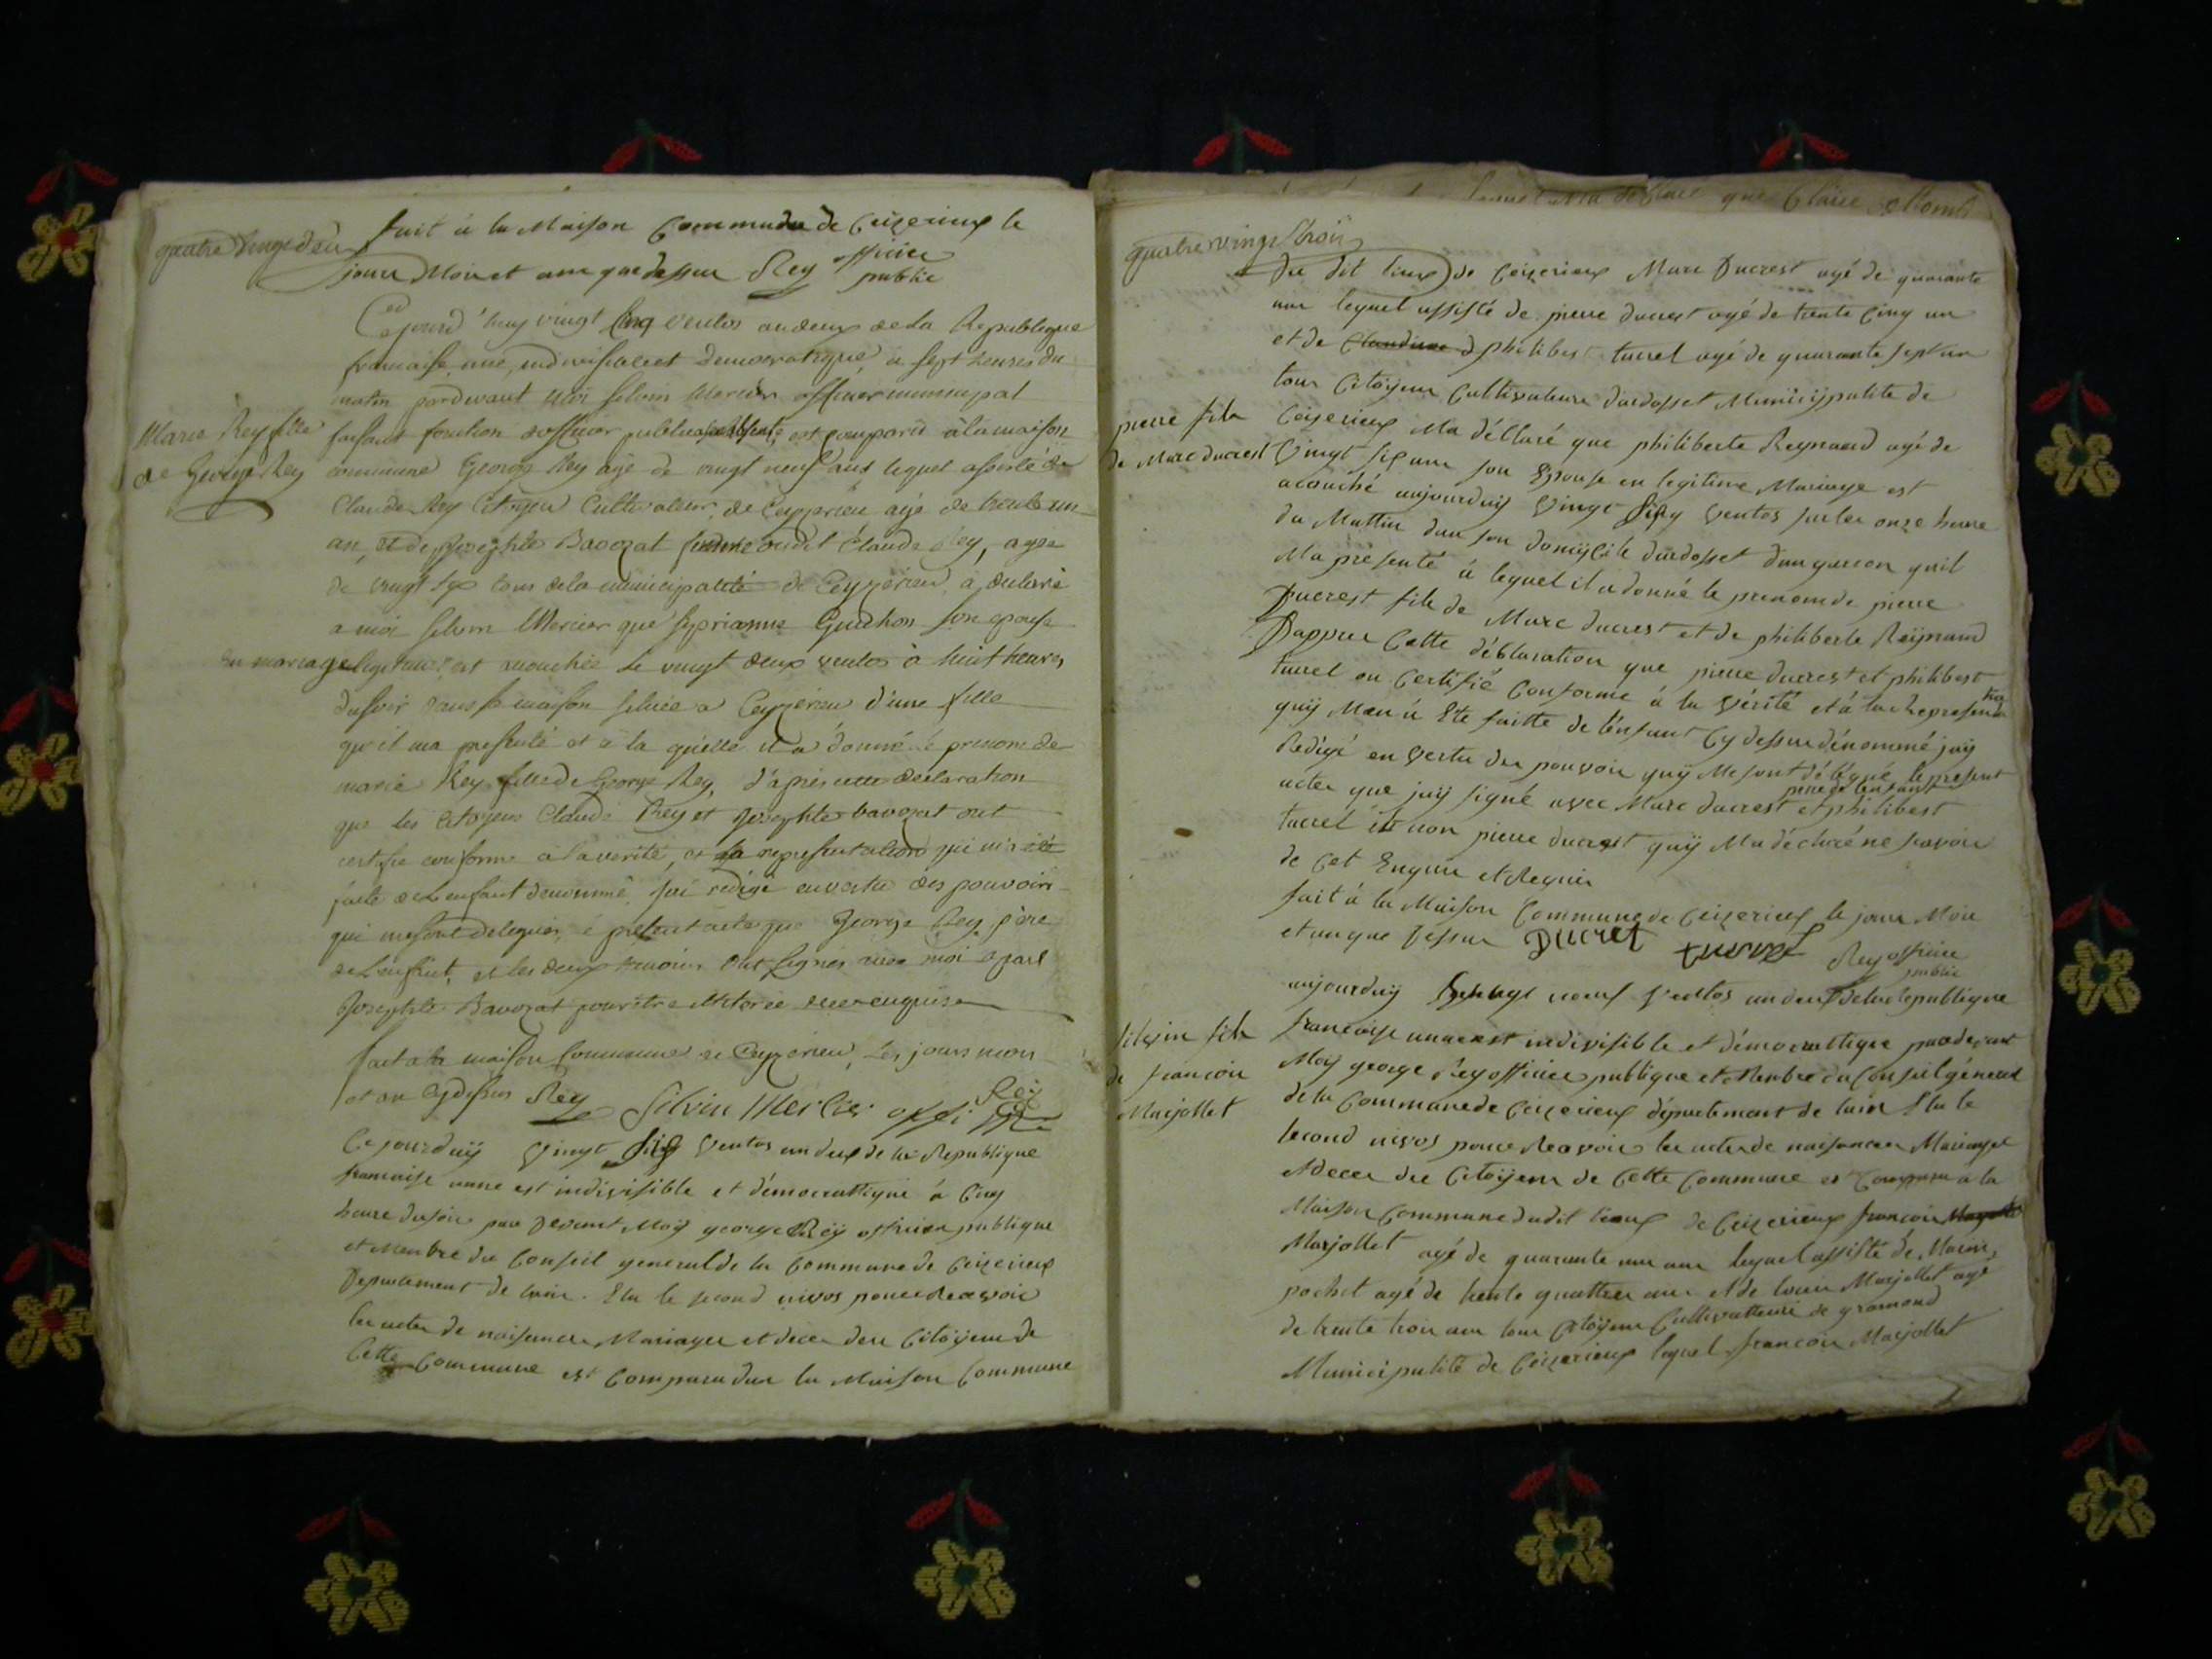 quatre vingt deux
fait à la Maison Commune de Ceizerieux le
jour Moir et ans que dessur Rey officier
public
Cejourd'huy vingt Cinq ventos an deux de la Republique
francaise, une, indivisible et democratique, à sept heures du
matin pardevant moi Silvin Mercier officier municipal
Marie Rey fille
de George Rey
faisant fonction d'officier public absent, est comparu à la maison
commune George Rey agé de vingt neuf ans lequel assisté de
Claude Rey Citoyen Cultivateur de Ceyzerieu agé de trente un
an, et de Josephte Bavozat femme dudit Claude Rey, agee
de vingt six tous de la municipalité de Ceyzerieu, a declaré
a moi Silvin Mercier que Syprianne Guichon son epouse
en mariage legitime, est acouchée le vingt deux ventos à huit heures
du soir dans sa maison scituée a Ceyzerieu d'une fille
qu'il ma presenté et à la quelle il a donné le prenom de
marie Rey fille de George Rey, d'après cette declaration
que les Citoyens Claude Rey et Josephte bavozat ont
certifié conforme à la verité, et la representation qui m'a été
faite de l'enfant denommé, J'ai redigé en vertu des pouvoirs
qui me sont delegués, le present acte que George Rey père
de l'enfant, et les deux temoins ont signés avec moi a part
Josephte Bavozat pour être illiterée de ce enquise
fait a la maison Commune de Ceyzerieu, les jours mois
et an cy dessus Rey Silvin Mercier offi Rey
Ce jourduÿ Vingt Six Ventos an deux de la Republique
francaise unne est indivisible et démocrattique à Cinq
heure du soir par devant Moÿ george Reÿ officier publique
et Menbre du Conseil general de la Commune de Ceizerieux
Departement de lain. Elu le second nivos pour Recevoir
les actes de naisance Mariages et deces dese Citoÿens de
Cette Commune est Comparu dans la Maison Commune
quatre vingt trois
du dit lieux de Ceizerieux Marc Ducrest agé de quarante
ans lequel assisté de pierre ducrest agé de trente Cinq an
et de Claudinne d philibest turrel agé de quarante sept an
tous Citoÿens Cultivateurs dardosset Municÿpalite de
pierre fils
de Marc ducrest
Ceizerieux Ma déClaré que philiberte Reynaud agé de
Vingt six ans son Epouse en legitime Mariage est
acouché aujourduÿ Vingt Sixy Ventos sur les onze heure
du Mattin dans son domiÿcile dardosset dun garcon quil
Ma présenté à lequel il a donné le prenom de pierre
Ducrest fils de Marc ducrest et de philiberte Reÿnaud
Dapprer Cette déClaration que pierre ducrest et philibest
turrel on Certifié Conforme à la Vérité et à la Represen tion
quÿ Men à Ete faitte de lenfant Cy dessus dénommé jaÿ
Redigé en Vertu du pouvoir quÿ Me sont délégué le present
pere de lenfant
actes que jaÿ signé avec Marc ducrest et philibest
turrel et non pierre ducrest quÿ Ma déClaré ne savoir
de Cet Enquir et Requir
fait à la Maison Commune de Ceizerieux le jour Moir
et an que Dessur Ducret turrel Rey officier
public
aujourduÿ vingt neuf Ventos an deux de la Republique
silvin fils
de francoir
Marjollet
francoise unne est indivisible et démocrattique pardevant
Moÿ george Rey officier publique et Menbre du Conseil géneral
de la Commune de Ceizerieux département de lain Elu le
second nivos pour Recevoir les actes de naisances Mariages
et deces des Citoÿens de Cette Commune est Comparu a la
Maison Commune dudit lieux de Ceizerieux francoir
Marjollet agé de quarante un ans lequel assisté de
pochet agé de trente quattres ans et de louir Marjollet agé
de trente troir ans tous Citoÿens Cultivatteurs de gramond
Municipalité de Ceizerieux lequel francoir Marjollet